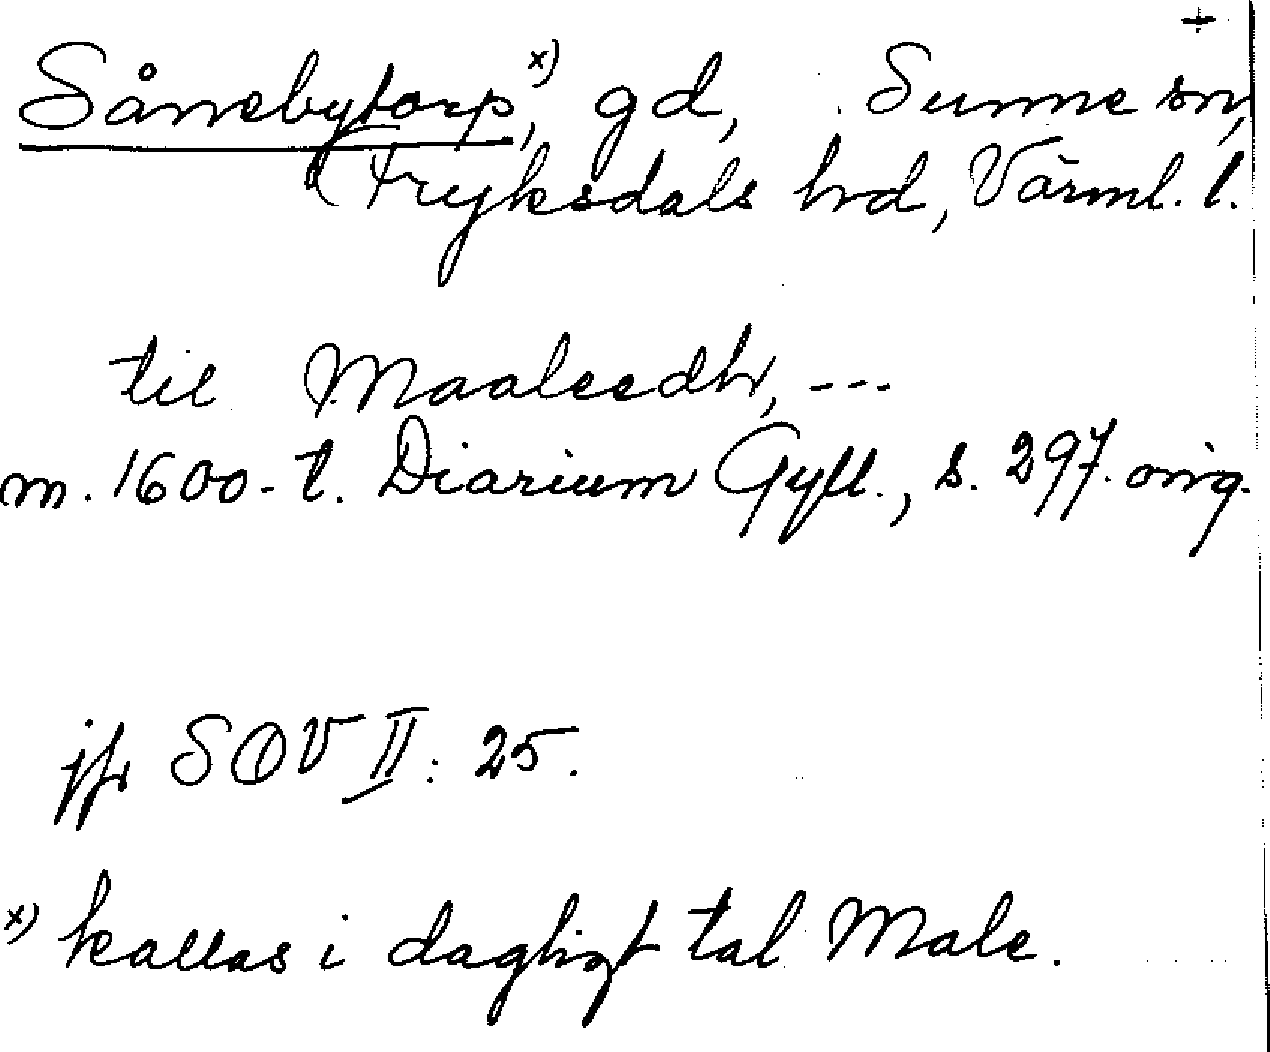 +
Sånebytorp,x) gd, Sunne sn,
Fryksdals hrd, Värml. l.
til Maaleedh, ---
m. 1600-t. Diarium Gyll., s. 297. orig.
jfr SOV II: 25.
x) kallas i dagligt tal Male.